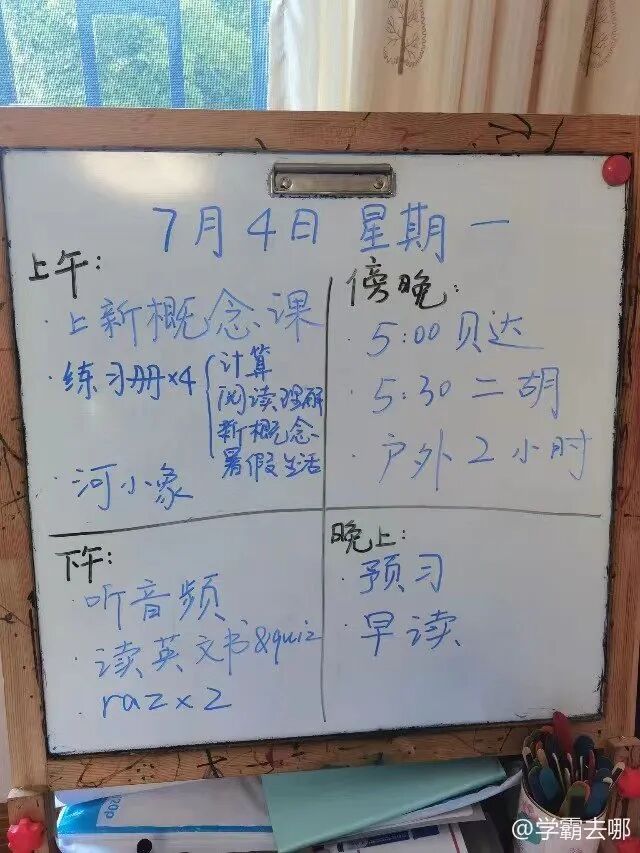 7月4日 星期一
上午:
·上新概念课
·练习册×4
计算
阅读理解
新概念
暑假生活
·河小象
傍晚:
·5:00贝达
·5:30二胡
·户外2小时
下午:
·听音频
·读英文书&quiz
raz×2
晚上:
·预习
·早读
20p
@学霸去哪